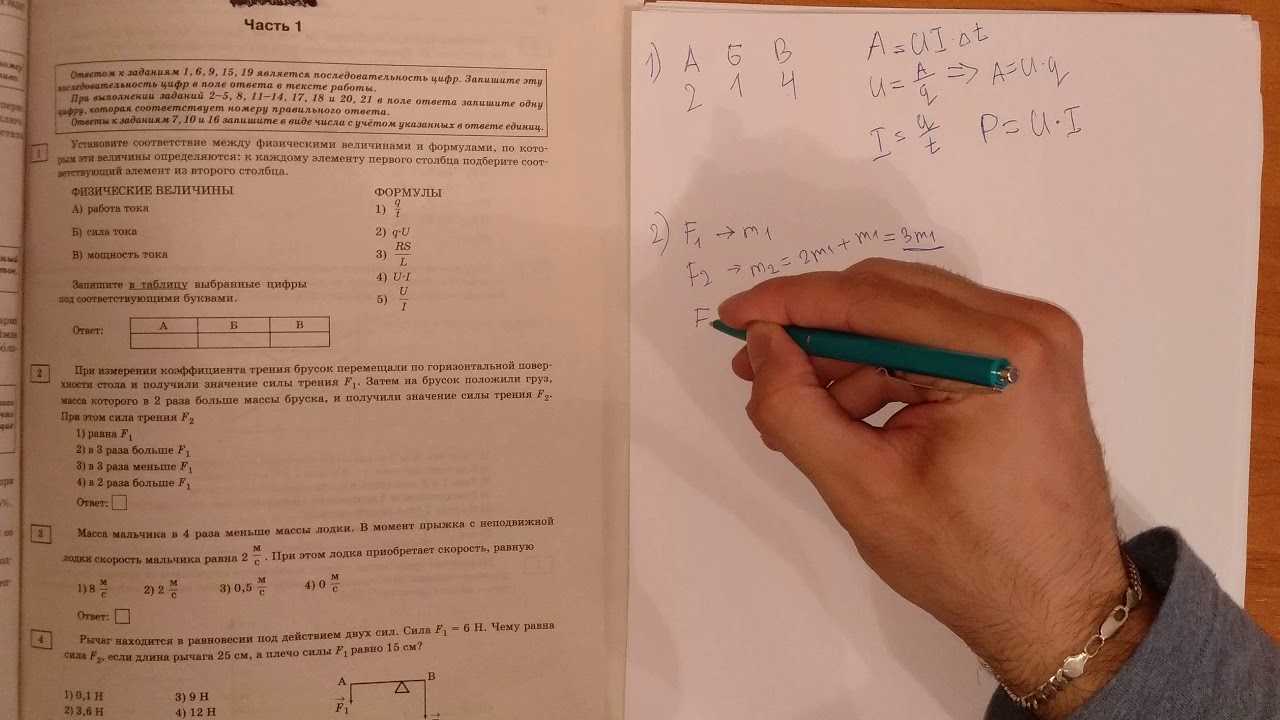 Часть 1
Ответом к заданиям 1, 6, 9, 15, 19 является последовательность цифр. Запишите эту
последовательность цифр в поле ответа в тексте работы.
При выполнении заданий 2–5, 8, 11–14, 17, 18 и 20, 21 в поле ответа запишите одну
цифру, которая соответствует номеру правильного ответа.
Ответы к заданиям 7, 10 и 16 запишите в виде числа с учётом указанных в ответе единиц.
1 Установите соответствие между физическими величинами и формулами, по кото-
рым эти величины определяются: к каждому элементу первого столбца подберите соот-
ветствующий элемент из второго столбца.
ФИЗИЧЕСКИЕ ВЕЛИЧИНЫ
А) работа тока
Б) сила тока
В) мощность тока
ФОРМУЛЫ
1) q/t
2) q·U
3) RS/L
4) U·I
5) U/I
Запишите в таблицу выбранные цифры
под соответствующими буквами.
Ответ: А Б В
2 При измерении коэффициента трения брусок перемещали по горизонтальной повер-
хности стола и получили значение силы трения F₁. Затем на брусок положили груз,
масса которого в 2 раза больше массы бруска, и получили значение силы трения F₂.
При этом сила трения F₂
1) равна F₁
2) в 3 раза больше F₁
3) в 3 раза меньше F₁
4) в 2 раза больше F₁
Ответ:
3 Масса мальчика в 4 раза меньше массы лодки. В момент прыжка с неподвижной
лодки скорость мальчика равна 2 м/с. При этом лодка приобретает скорость, равную
1) 8 м/с 2) 2 м/с 3) 0,5 м/с 4) 0 м/с
Ответ:
4 Рычаг находится в равновесии под действием двух сил. Сила F₁ = 6 Н. Чему равна
сила F₂, если длина рычага 25 см, а плечо силы F₁ равно 15 см?
1) 0,1 Н 3) 9 Н
2) 3,6 Н 4) 12 Н
А В
F₁
1) А Б В
2 1 4
A = UI·Δt
U = A/q ⇒ A = U·q
I = q/t P = U·I
2) F₁ → m₁
F₂ → m₂ = 2m₁ + m₁ = 3m₁
F